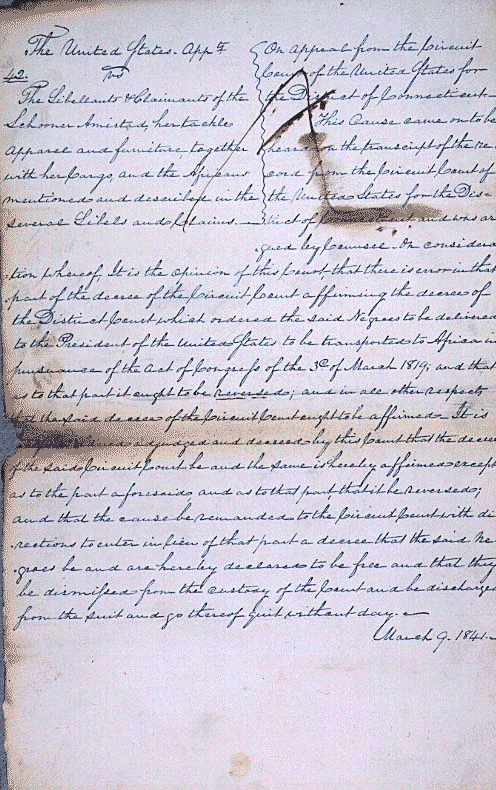 The United States. Appts
42. vs
The Libellants & Claimants of the
Schooner Amistad, her tackle
apparel and furniture together
with her Cargo, and the Africans
mentioned and described in the
several Libels and Claims.
On appeal from the Circuit
Court of the United States for
the District of Connecticut
This Cause came on to be
heard on the transcript of the re-
cord from the Circuit Court of
the United States for the Dis-
trict of and was ar-
gued by Counsel. On considera-
tion whereof, It is the opinion of this Court that there is error in that
part of the decree of the Circuit Court affirming the decree of
the District Court which ordered the said Negroes to be delivered
to the President of the United States to be transported to Africa in
pursuance of the Act of Congress of the 3d of March 1819; and that
as to that part it ought to be reversed; and in all other respects
that the said decree of the Circuit Court ought to be affirmed. It is
adjudged and decreed by this Court that the decree
of the said Circuit Court be and the same is hereby affirmed except
as to the part aforesaid and as to that part that it be reversed;
and that the cause be remanded to the Circuit Court with di-
rections to enter in lieu of that part a decree that the said Ne-
groes be and are hereby declared to be free and that they
be dismissed from the custody of the Court and be discharged
from the suit and go thereof quit without day.
March 9. 1841.